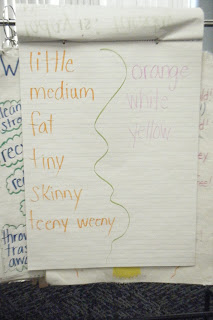 little
medium
fat
tiny
skinny
teeny weeny
orange
white
yellow